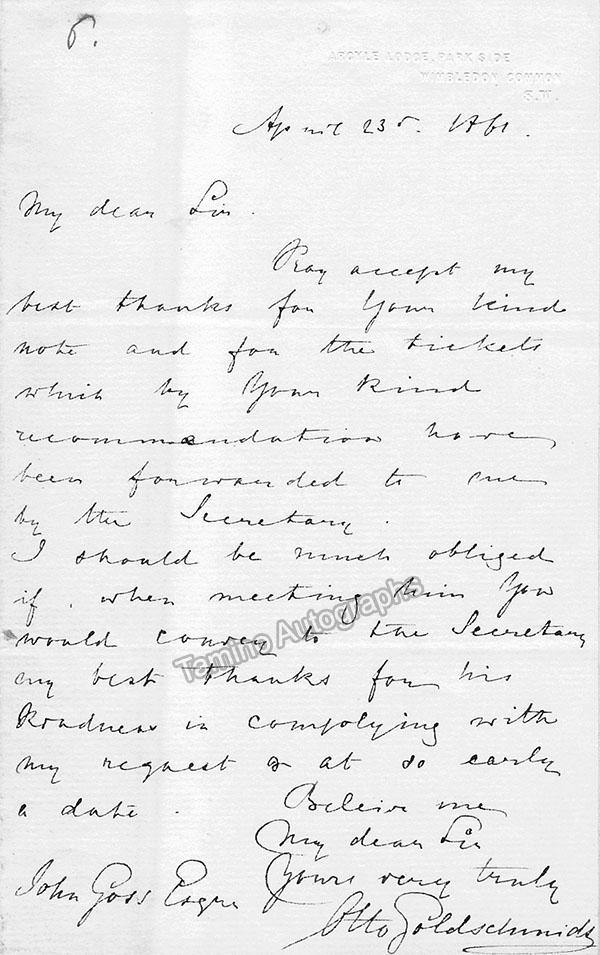 6.
ARGYLE LODGE, PARK SIDE
WIMBLEDON COMMON
S.W.
April 23d. 1861.
My dear Sir.
Pray accept my
best thanks for Your kind
note and for the tickets
which by Your kind
recommendation have
been forwarded to me
by the Secretary.
I should be much obliged
if, when meeting him You
would convey to the Secretary
my best thanks for his
Kindness in complying with
my request & at so early
a date.
Beleive me
My dear Sir
Yours very truly
John Goss Esqre
Otto Goldschmidt
Tamino Autographs